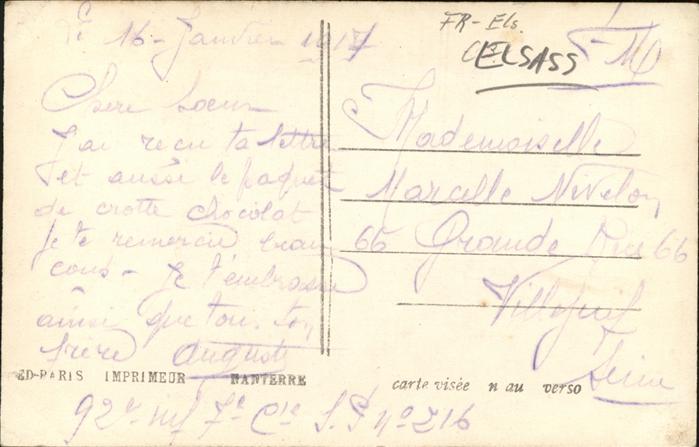 le 16 - Janvier 1917
Chère soeur
J'ai reçu ta lettre
et aussi le paquet
de crotte chocolat
je te remercie beau
coup - Je t'embrasse
ainsi que tous ton
frère Auguste
92e inf 7e Cie S.P no 216
FR - Els.
ELSASS
F-M
Mademoiselle
Marcelle Nivelon
66 Grande Rue 66
Villejuif
Seine
ED-PARIS IMPRIMEUR NANTERRE
carte visée n au verso